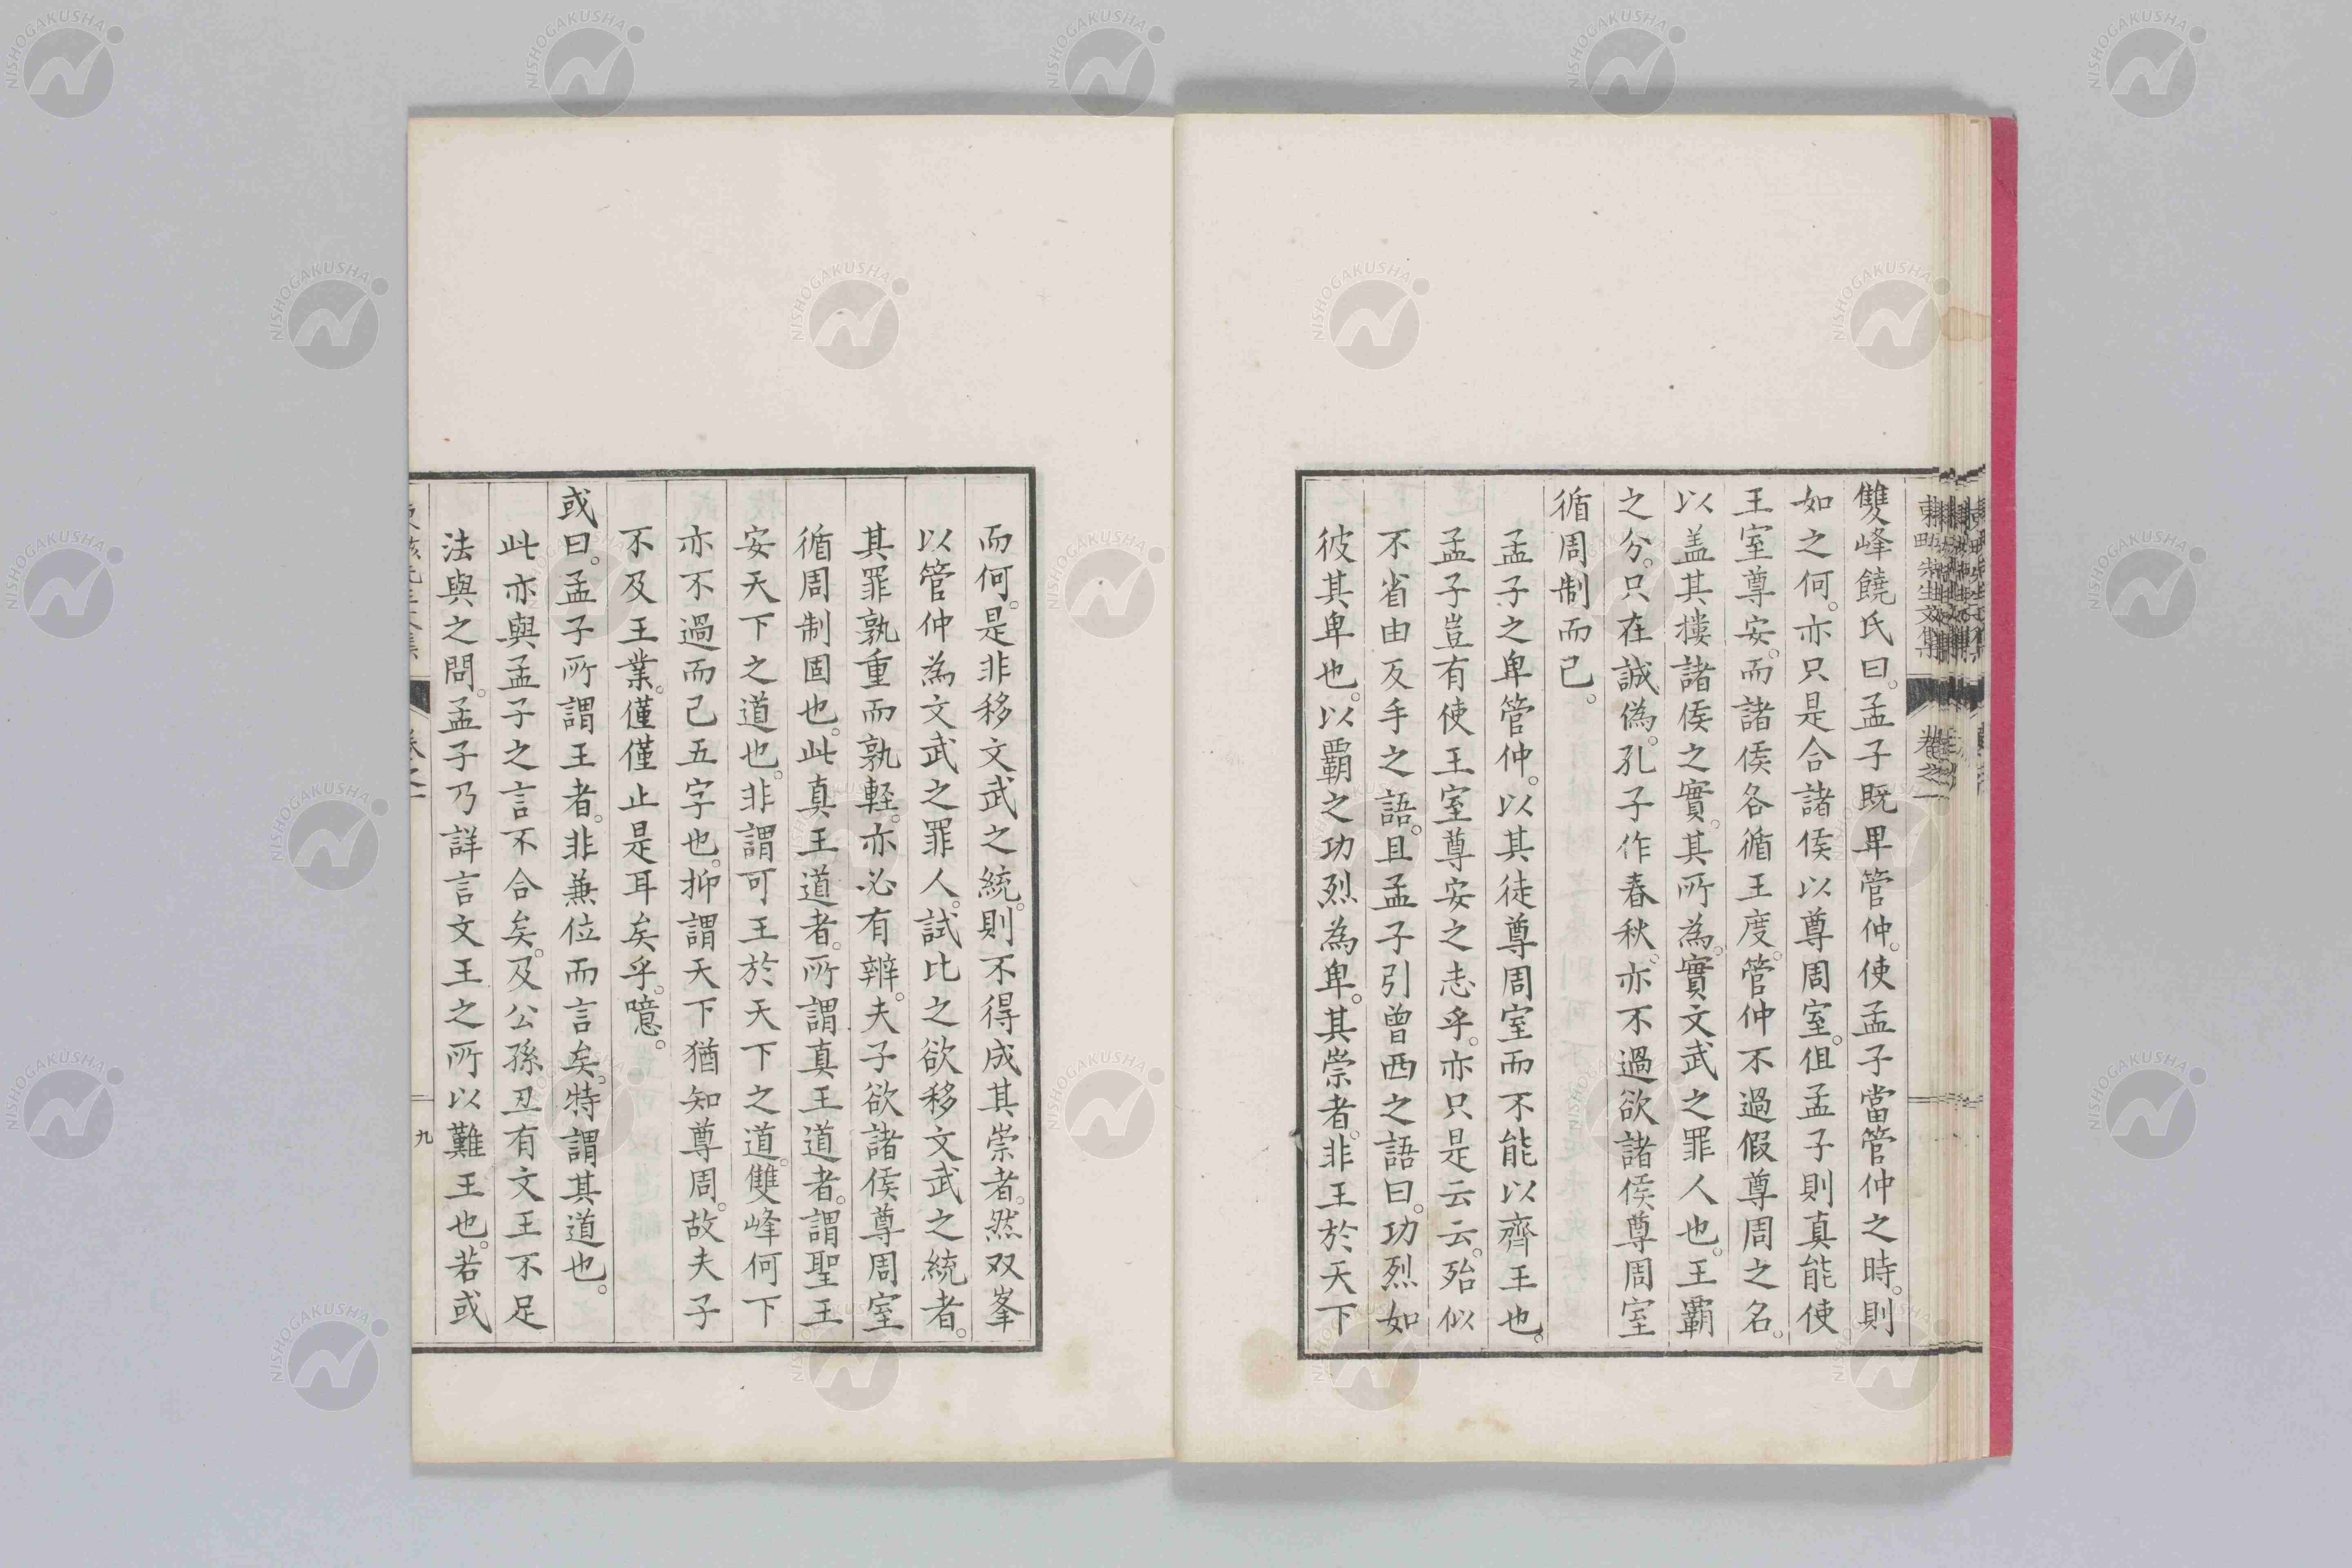 雙峰饒氏曰。孟子既畀管仲。使孟子當管仲之時。則
如之何。亦只是合諸侯以尊周室。但孟子則真能使
王室尊安。而諸侯各循王度。管仲不過假尊周之名。
以盖其摟諸侯之實。其所為。實文武之罪人也。王霸
之分。只在誠偽。孔子作春秋。亦不過欲諸侯尊周室
循周制而已。
孟子之卑管仲。以其徒尊周室而不能以齊王也。
孟子豈有使王室尊安之志乎。亦只是云云。殆似
不省由反手之語。且孟子引曾西之語曰。功烈如
彼其卑也。以霸之功烈為卑。其崇者。非王於天下
而何。是非移文武之統。則不得成其崇者。然双峯
以管仲為文武之罪人。試比之欲移文武之統者。
其罪孰重而孰軽。亦必有辨。夫子欲諸侯尊周室
循周制固也。此真王道者。所謂真王道者。謂聖王
安天下之道也。非謂可王於天下之道。雙峰何下
亦不過而已五字也。抑謂天下猶知尊周。故夫子
不及王業。僅僅止是耳矣乎。噫。
或曰。孟子所謂王者。非兼位而言矣。特謂其道也。
此亦與孟子之言不合矣。及公孫丑有文王不足
法與之問。孟子乃詳言文王之所以難王也。若或
卷之一
九
NISHOGAKUSHA